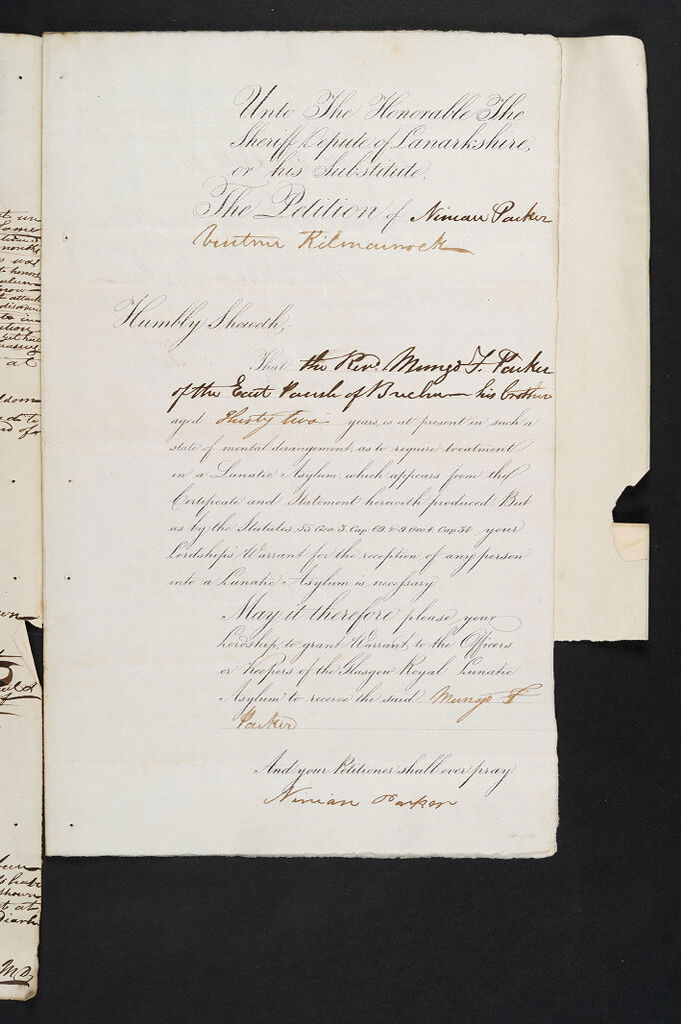 Unto The Honorable The
Sheriff Depute of Lanarkshire,
or his Substitute,
The Petition of Ninian Parker
Vintner Kilmarnock
Humbly Sheweth,
That the Revd. Mungo F. Parker
of the East Parish of his brother
aged Thirty two years, is at present in such a
state of mental derangement, as to require treatment
in a Lunatic Asylum, which appears from the
Certificate and Statement herewith produced. But
as by the Statutes, 55. Geo. 3. Cap. 69. & 9. Geo. 4. Cap. 34. your
Lordships Warrant for the reception of any person
into a Lunatic Asylum is necessary.
May it therefore please your
Lordship, to grant Warrant, to the Officers
or Keepers of the Glasgow Royal Lunatic
Asylum to receive the said Mungo F
Parker
And your Petitioner shall ever pray
Ninian Parker